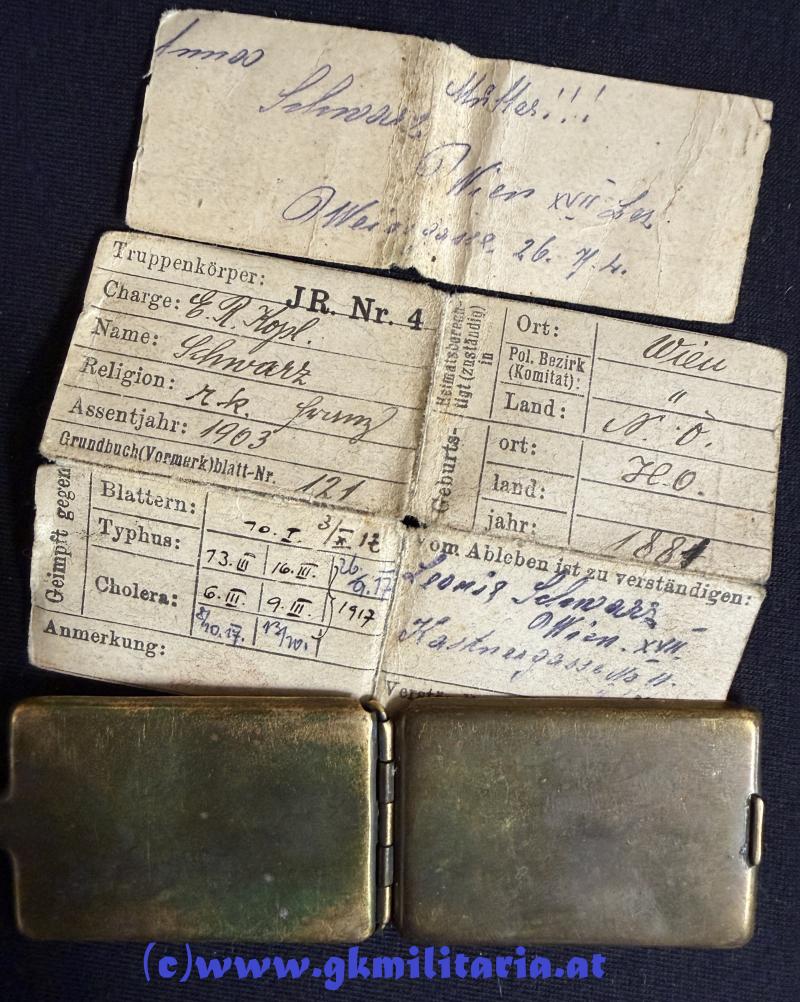 Mutter!!!
Schwarz
Wien XVII Bez.
26. 4.
Truppenkörper: JR. Nr. 4
Charge: E. R. Kopl.
Name: Schwarz
Religion: r. k. Franz
Assentjahr: 1903
Grundbuch(Vormerk)blatt-Nr. 121
Heimatsberechtigt (zuständig) in
Ort: Wien
Pol. Bezirk (Komitat): "
Land: N. Ö.
Geburts-
ort:
land: N.Ö.
jahr: 1881
Geimpft gegen
Blattern: 10. I. 3/IX 17
Typhus: 13. III 16. III. 26. 17
Cholera: 6. III. 9. III. 1917
10. 17.
Anmerkung:
Vom Ableben ist zu verständigen:
Schwarz
Wien. XVII
Kastnergasse No 11.
(c)www.gkmilitaria.at